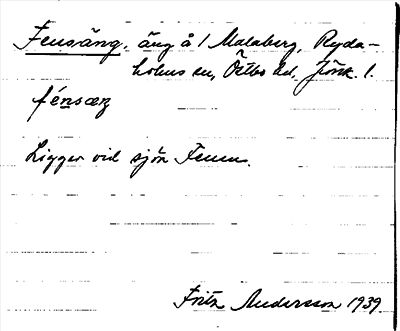 Fensäng, äng å 1 Malaberg, Ryda-
holms sn, Östbo hd, Jönk. l.
fénsæŋ
Ligger vid sjön Fenen.
Fritz Andersson 1939